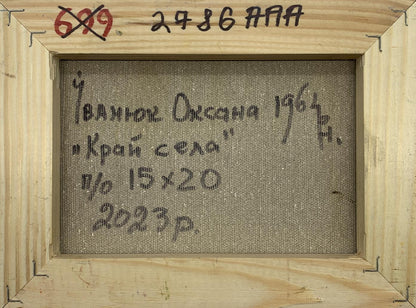 679 2786AAA
Іванюк Оксана 1964 р.н.
"Край села"
п/о 15х20
2023р.